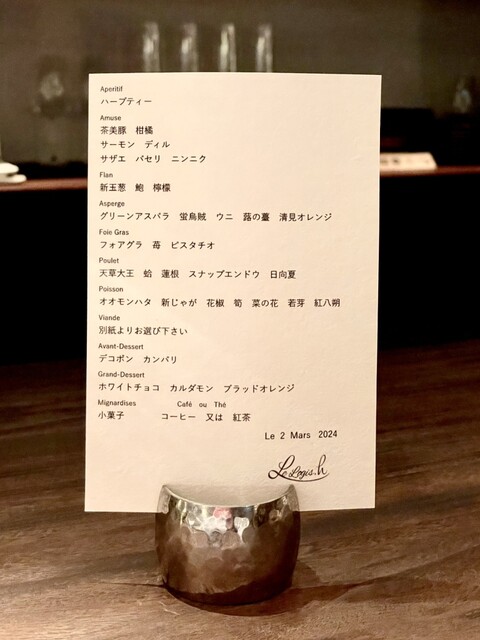 Aperitif
ハーブティー
Amuse
茶美豚 柑橘
サーモン ディル
サザエ パセリ ニンニク
Flan
新玉葱 鮑 檸檬
Asperge
グリーンアスパラ 蛍烏賊 ウニ 蕗の薹 清見オレンジ
Foie Gras
フォアグラ 苺 ピスタチオ
Poulet
天草大王 蛤 蓮根 スナップエンドウ 日向夏
Poisson
オオモンハタ 新じゃが 花椒 筍 菜の花 若芽 紅八朔
Viande
別紙よりお選び下さい
Avant-Dessert
デコポン カンパリ
Grand-Dessert
ホワイトチョコ カルダモン ブラッドオレンジ
Mignardises Café ou Thé
小菓子 コーヒー 又は 紅茶
Le 2 Mars 2024
Le Logis.h